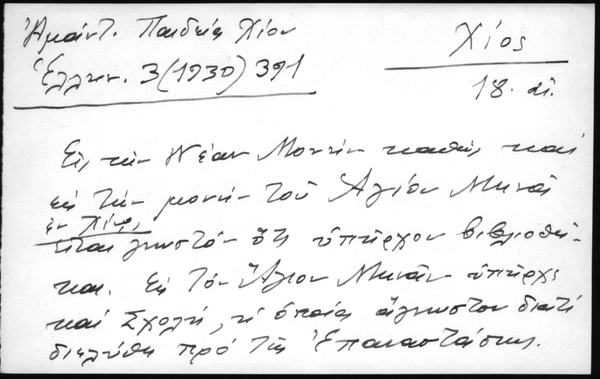 Ἀμάντ. Παιδεία Χίου
Ἑλλην. 3 (1930) 391
Χίος
18. αἰ.
Εἰς τὴν Νέαν Μονὴν καθὼς καὶ
εἰς τὴν μονὴν τοῦ Ἁγίου Μηνᾶ
ἐν Χίῳ,
εἶναι γνωστὸν ὅτι ὑπῆρχον βιβλιοθῆ-
και. Εἰς τὸν Ἅγιον Μηνᾶν ὑπῆρχε
καὶ Σχολή, ἡ ὁποία ἄγνωστον διατί
διελύθη πρὸ τῆς Ἐπαναστάσεως.